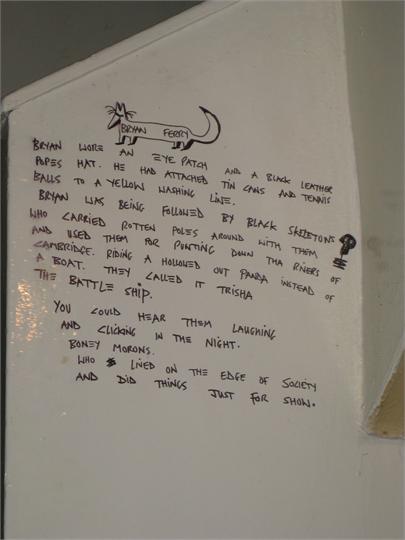 BRYAN FERRY
BRYAN WORE AN EYE PATCH AND A BLACK LEATHER
POPES HAT. HE HAD ATTACHED TIN CANS AND TENNIS
BALLS TO A YELLOW WASHING LINE.
BRYAN WAS BEING FOLLOWED BY BLACK SKELETONS
WHO CARRIED ROTTEN POLES AROUND WITH THEM
AND USED THEM FOR PUNTING DOWN THA RIVERS OF
CAMBRIDGE. RIDING A HOLLOWED OUT PANDA INSTEAD OF
A BOAT. THEY CALLED IT TRISHA
THE BATTLE SHIP.
YOU COULD HEAR THEM LAUGHING
AND CLICKING IN THE NIGHT.
BONEY MORONS.
WHO LIVED ON THE EDGE OF SOCIETY
AND DID THINGS JUST FOR SHOW.